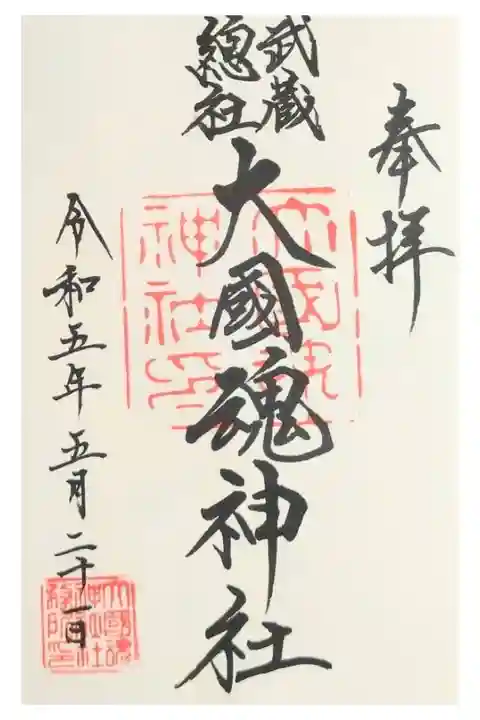 奉拝
武蔵
總社
大國魂神社
令和五年五月二十一日
大國魂
神社印